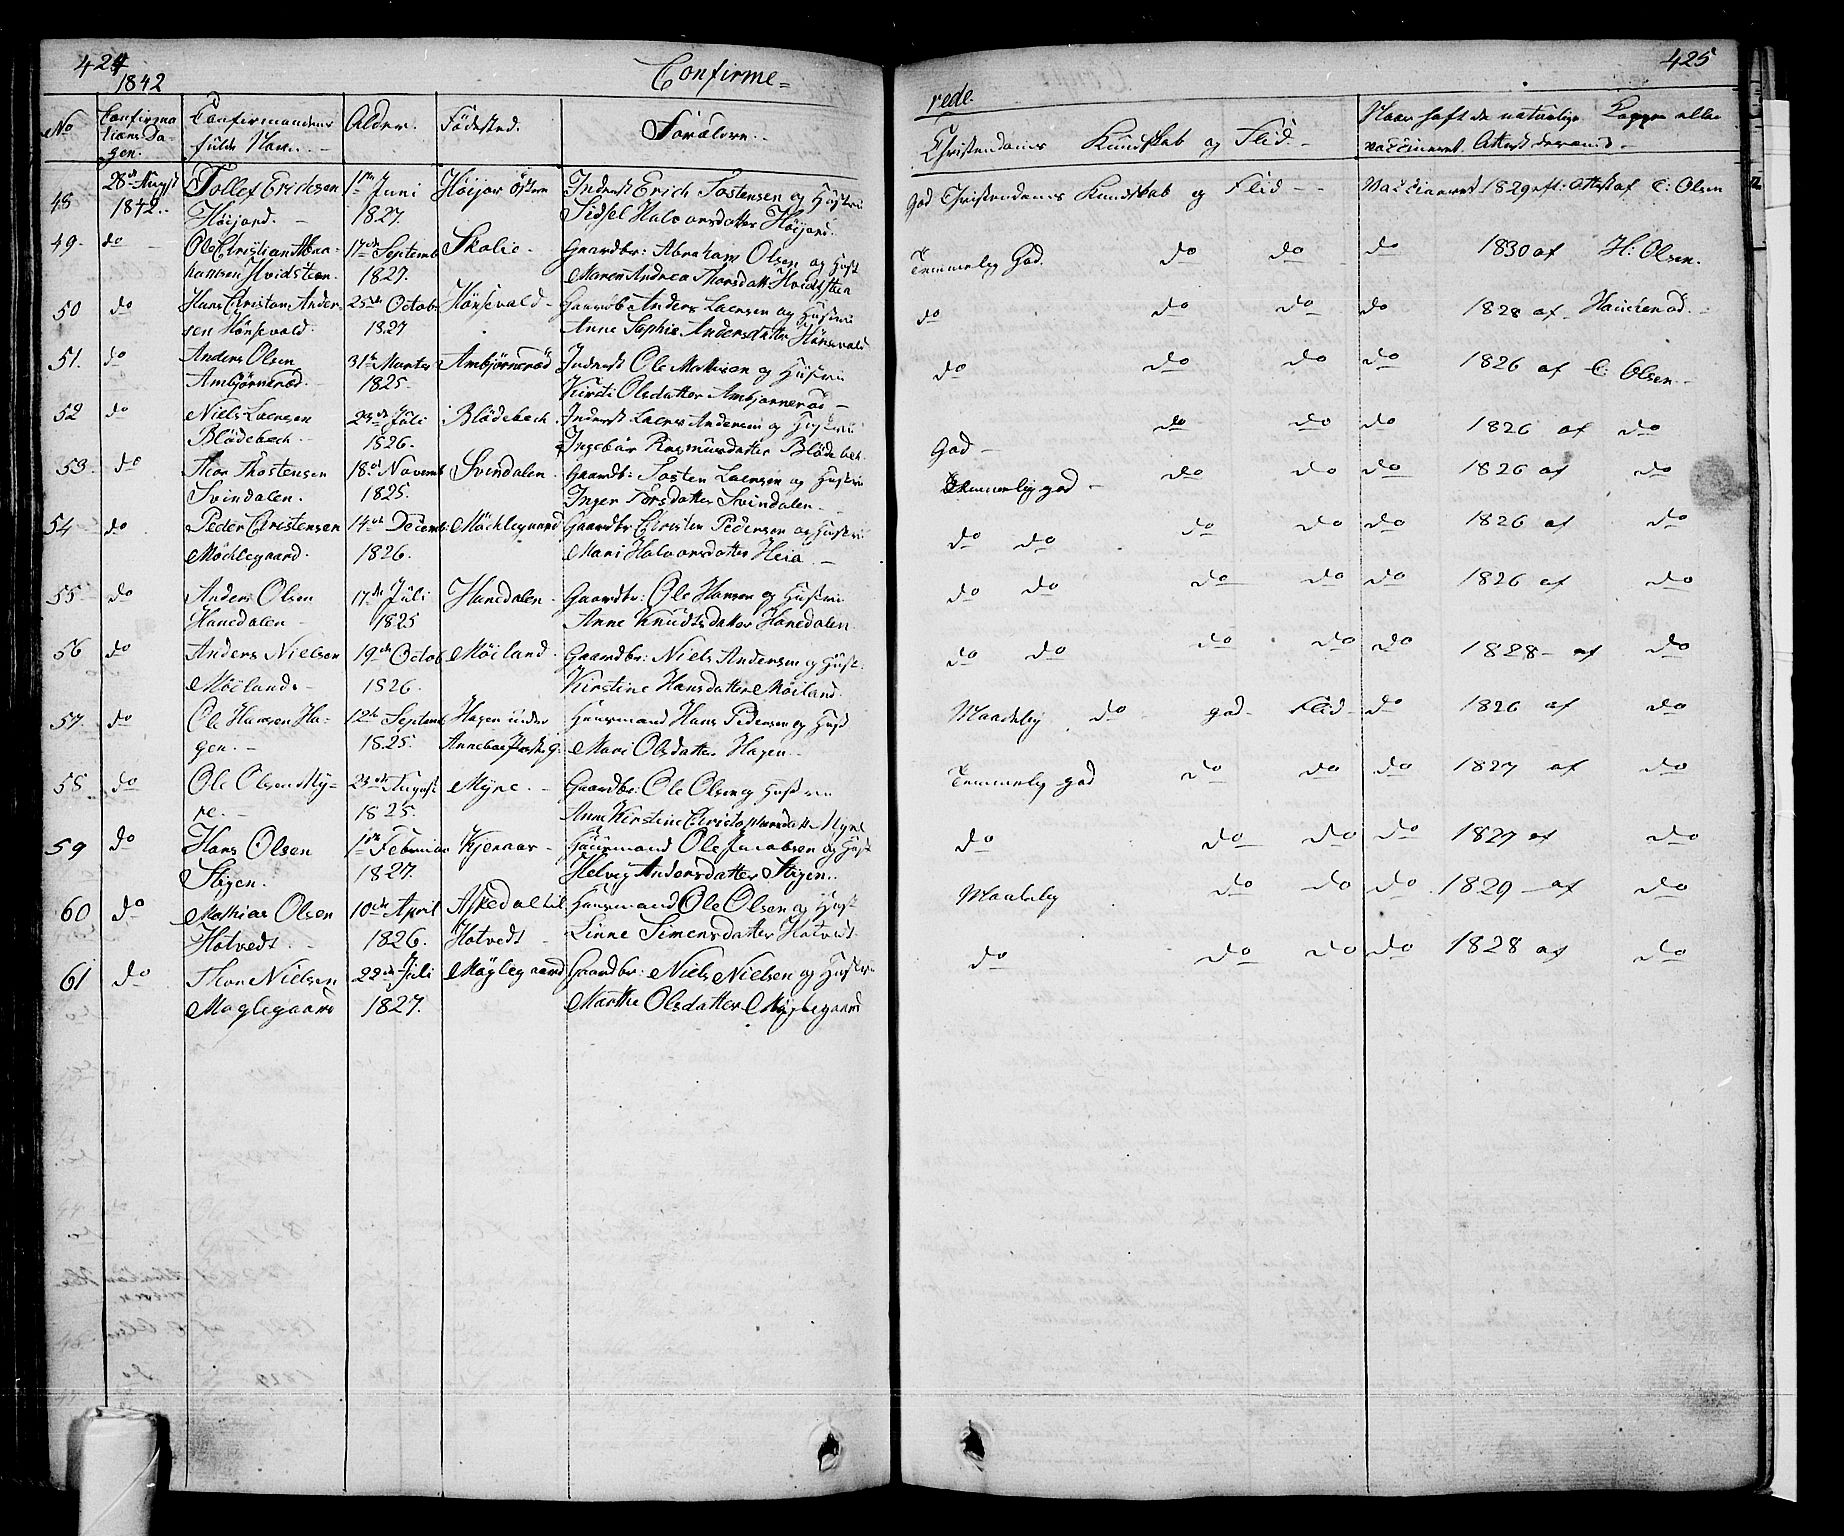 424
1842
Confirme=
No
Confirma
tions Da-
gen.
Confirmandens
fulde Navn.
Alder.
Födested.
Forældre.
48
28de August
1842.
Tollef Erichsen
Höijord.
1ste Juni
1827.
Höijor östre
Inderst Erich Tostensen og Hustrue
Sidsel Halvorsdatter Höijord.
49
do
Ole Christian Abra-
hamsen Hvidsteen.
17de Septemb
1827.
Skolie
Gaardbr: Abraham Olsen og Hust
Maren Andrea Thorsdatt Hvidsteen
50
do
Hans Christian Ander-
sen Hönsevald.
25de Octob
1827
Hönsevald
Gaardb Anders Laersen og Hustrue
Anne Sophie Andersdatter Hönsevald
51.
do
Anders Olsen
Ambjörneröd.
31te Martz
1825.
Ambjörneröd
Inderst Ole Mathisen og Hustrue
Kirsti Olsdatter Ambjörneröd
52
do
Niels Laersen
Blödebech
1826.
Blödebech
Inderst Laers Andersen og Hustrue
Ingebör Rasmusdatter Blödebech.
53.
do
Thor Thostensen
Svindalen.
18de Novemb
1825.
Svindalen.
Gaardb: Tosten Laersen og Hustrue
Inger Torsdatter Svindalen
54
do
Peder Christensen
Möchlegaard.
14de Decemb
1826.
Möchlegaard
Gaardbr Christen Pedersen og Hustrue
Mari Halvorsdatter Heia
55
do
Anders Olsen
Hanedalen
17de Juli
1825
Hanedalen
Gaardbr: Ole Hansen og Hustrue
Anne Knudsdatter Hanedalen
56
do
Anders Nielsen
Möilands
19de Octob
1826.
Möiland.
Gaardbr: Niels Andersen og Hust.
Kirstine Hansdatter Möiland.
57.
do
Ole Hansen Ha-
gen.
12te Septemb
1825.
Hagen under
Husmand Hans Pedersen og Hust
Mari Olsdatter Hagen
58
do
Ole Olsen My-
re.
23de August
1825.
Myre.
Gaardbr: Ole Olsen og Hustrue
Anne Kirstine Christophersdatter Myre
59
do
Hans Olsen
Stigen.
1ste Februar
1827.
Kjenaas
Husmand Ole Jacobsen og Hust
Helvig Andersdatter Stigen.
60
do
Mathias Olsen
Hotvedt.
10de April
1826.
Askedal til
Hotvedt
Husmand Ole Olsen og Hust
Linne Simensdatter Hotvedt
61
do
Thor Nielsen
Möglegaard
22de Juli
1827.
Möglegaard
Gaardbr: Niels Nielsen og Hustrue
Marthe Olsdatter Möglegaard
425
rede.
Christendoms Kundskab og Flid.
Naar haft de naturlige Kopper eller
vaccineret. Attest derom.
God Christendoms Kundskab og Flid
Vaccineret 1829 eft: Attest af C: Olsen
Temmelig God.
do
do
do
1830 af H: Olsen.
do
do
do
do
1828 af
do
do
do
do
1826 af C: Olsen
God
do
do
do
1826 af do
Temmelig god
do
do
do
1826 af do
do do
do
do
do
1826 af do
do do
do
do
do
1826 af do
do do
do
do
do
1828 af do
Maadelig do god Flid
do
1826 af do
Temmelig god
do
do
do
1827 af do
do
do
do
do
1827 af do
Maadelig
do
do
do
1829 af do
do
do
do
do
1828 af do